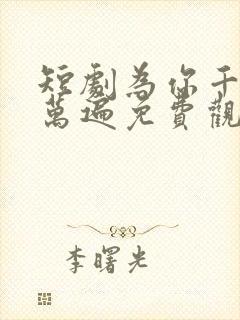 短劇為你千
萬遍免費觀
李曙光